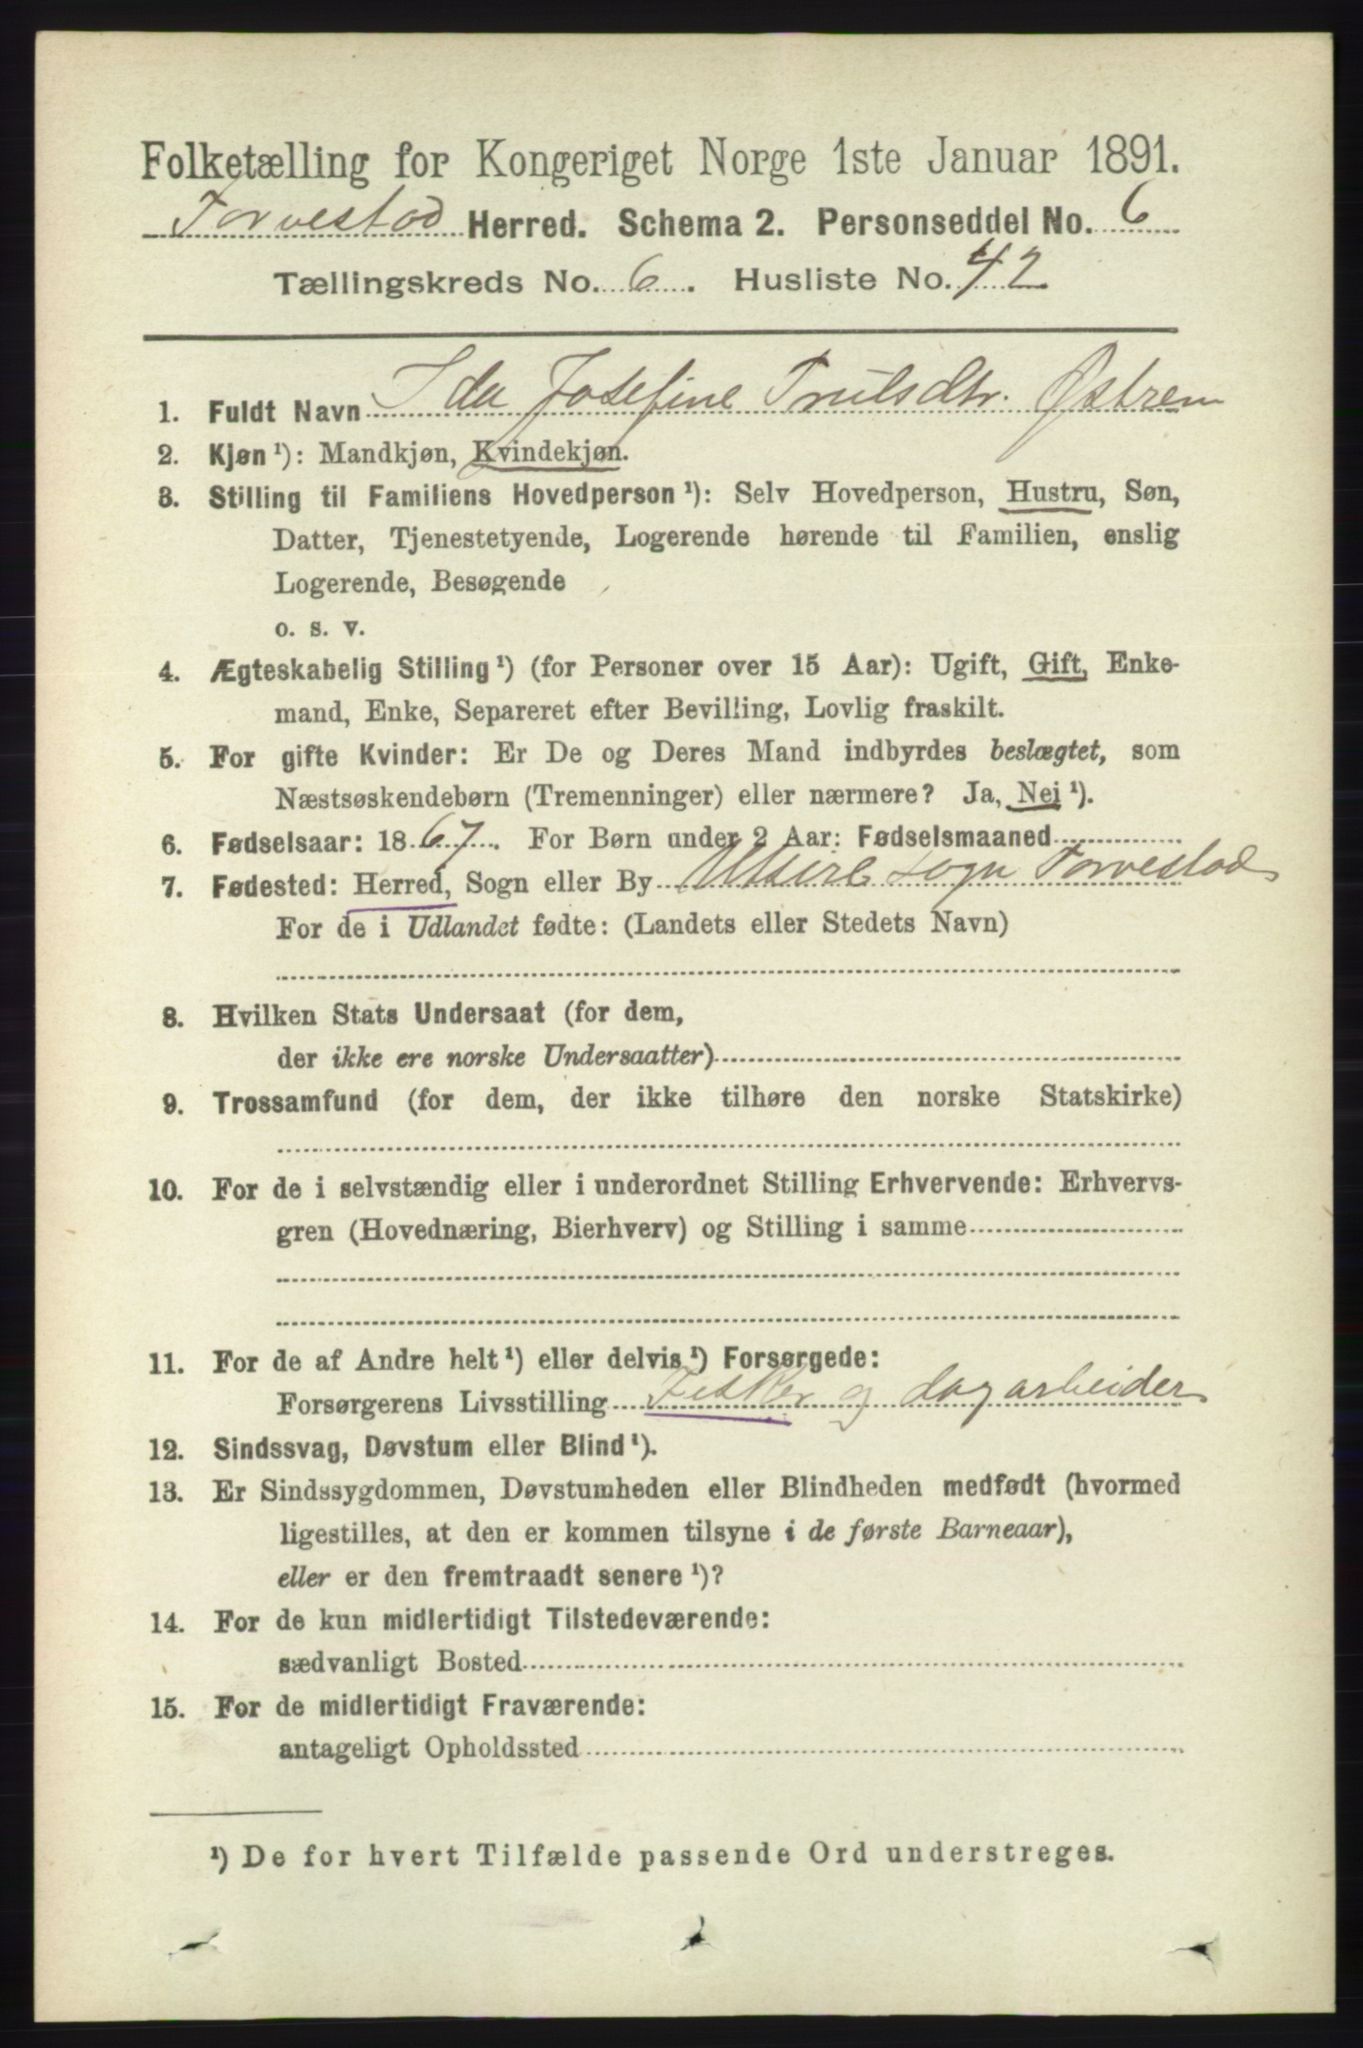 Folketælling for Kongeriget Norge 1ste Januar 1891.
Torvestad Herred. Schema 2. Personseddel No. 6
Tællingskreds No. 6. Husliste No. 42
1. Fuldt Navn Ida Josefine Trulsdtr. Østrem
2. Kjøn ¹): Mandkjøn, Kvindekjøn.
3. Stilling til Familiens Hovedperson ¹): Selv Hovedperson, Hustru, Søn,
Datter, Tjenestetyende, Logerende hørende til Familien, enslig
Logerende, Besøgende
o. s. v.
4. Ægteskabelig Stilling ¹) (for Personer over 15 Aar): Ugift, Gift, Enke-
mand, Enke, Separeret efter Bevilling, Lovlig fraskilt.
5. For gifte Kvinder: Er De og Deres Mand indbyrdes beslægtet, som
Næstsøskendebørn (Tremenninger) eller nærmere? Ja, Nej ¹).
6. Fødselsaar: 1867. For Børn under 2 Aar: Fødselsmaaned
7. Fødested: Herred, Sogn eller By Utsire sogn Torvestad
For de i Udlandet fødte: (Landets eller Stedets Navn)
8. Hvilken Stats Undersaat (for dem,
der ikke ere norske Undersaatter)
9. Trossamfund (for dem, der ikke tilhøre den norske Statskirke)
10. For de i selvstændig eller i underordnet Stilling Erhvervende: Erhvervs-
gren (Hovednæring, Bierhverv) og Stilling i samme
11. For de af Andre helt ¹) eller delvis ¹) Forsørgede:
Forsørgerens Livsstilling Fisker og dagarbeider
12. Sindssvag, Døvstum eller Blind ¹).
13. Er Sindssygdommen, Døvstumheden eller Blindheden medfødt (hvormed
ligestilles, at den er kommen tilsyne i de første Barneaar),
eller er den fremtraadt senere ¹)?
14. For de kun midlertidigt Tilstedeværende:
sædvanligt Bosted
15. For de midlertidigt Fraværende:
antageligt Opholdssted
¹) De for hvert Tilfælde passende Ord understreges.